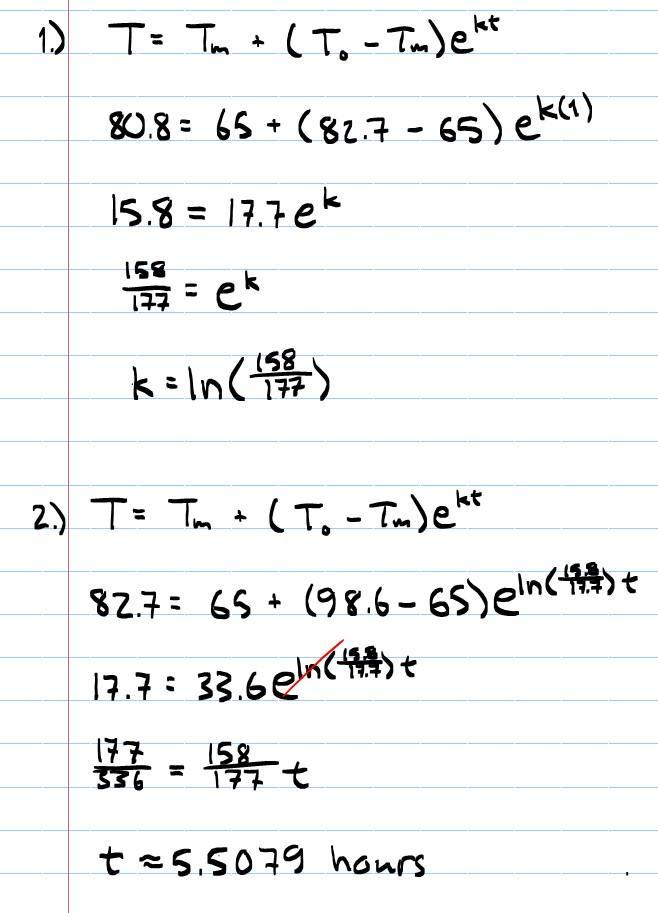 1.) T = Tₘ + (T₀ - Tₘ)e^(kt)
80.8 = 65 + (82.7 - 65) e^(k(1))
15.8 = 17.7 e^k
158/177 = e^k
k = ln(158/177)
2.) T = Tₘ + (T₀ - Tₘ)e^(kt)
82.7 = 65 + (98.6 - 65)e^(ln(15.8/17.7) t)
17.7 = 33.6 e^(ln(15.8/17.7) t)
177/336 = 158/177 t
t ≈ 5.5079 hours